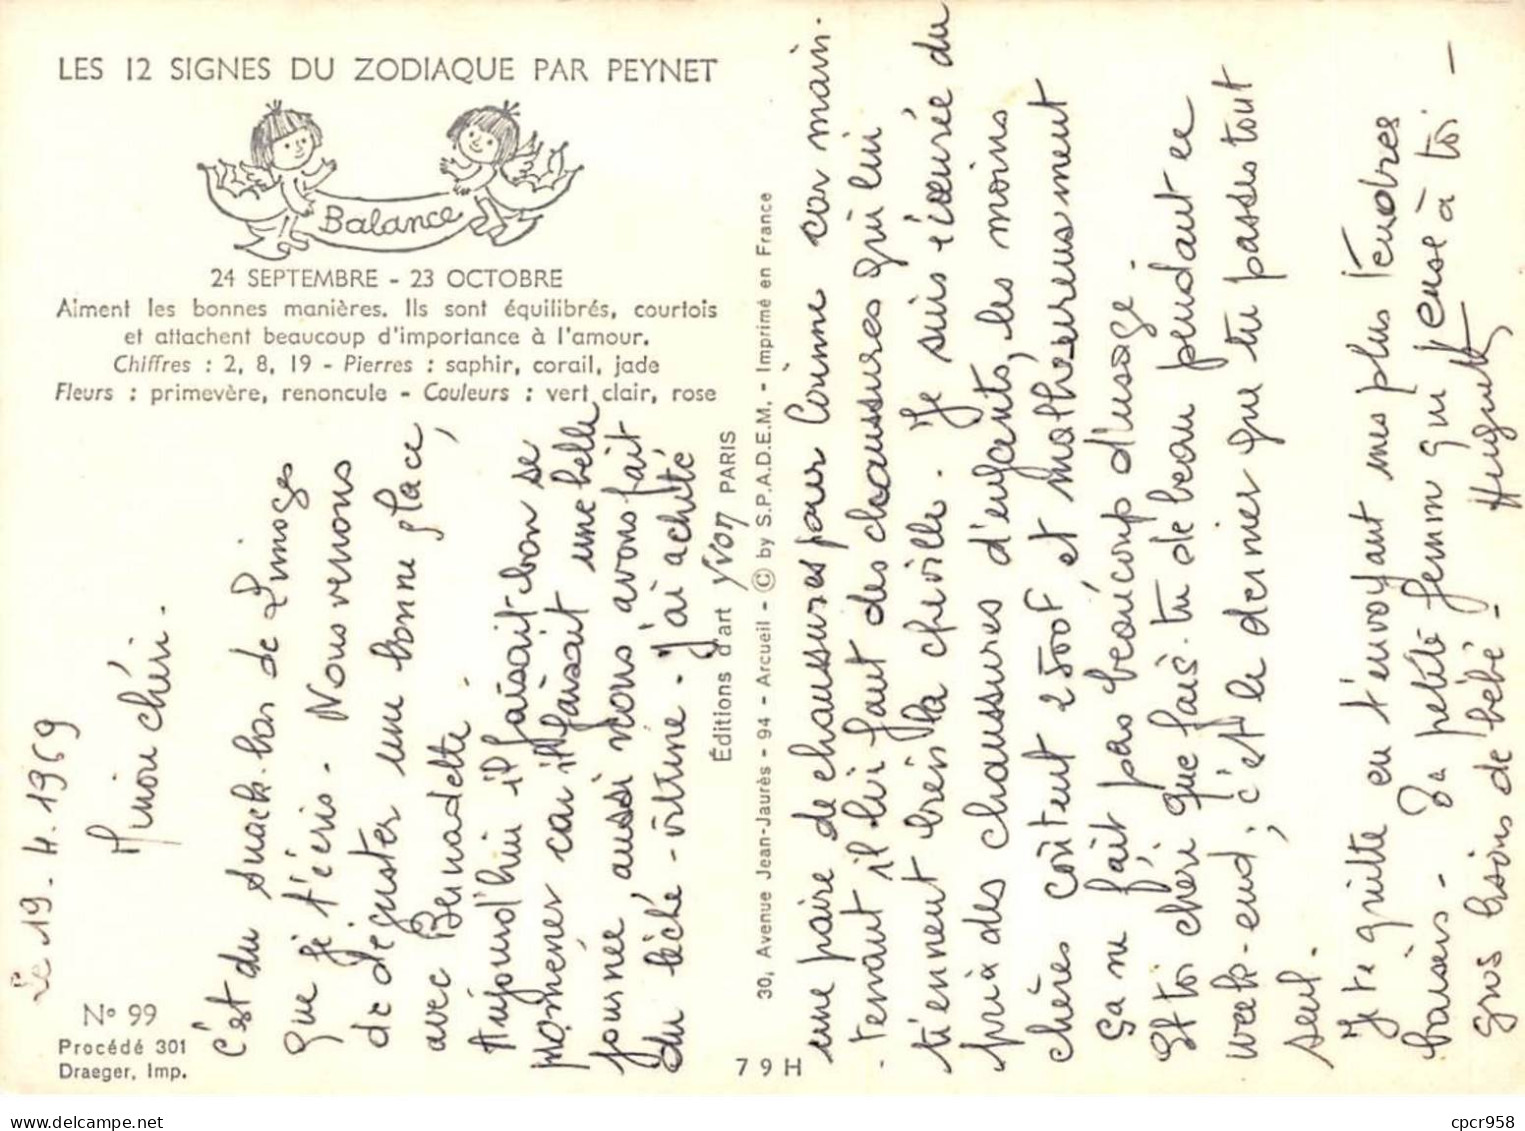 LES 12 SIGNES DU ZODIAQUE PAR PEYNET
Balance
24 SEPTEMBRE - 23 OCTOBRE
Aiment les bonnes manières. Ils sont équilibrés, courtois
et attachent beaucoup d'importance à l'amour.
Chiffres : 2, 8, 19 - Pierres : saphir, corail, jade
Fleurs : primevère, renoncule - Couleurs : vert clair, rose
Le 19.4.1969
Minou chéri.
C'est du snack-bar de Limoges
que je t'écris. Nous venons
de déguster une bonne glace,
avec Bernadette.
Aujourd'hui il faisait bon se
promener car il faisait une belle
journée, aussi nous avons fait
du lèche-vitrine. J'ai acheté
N° 99
Procédé 301
Draeger, Imp.
Éditions d'art Yvon PARIS
30, Avenue Jean-Jaurès - 94 - Arcueil - © by S.P.A.D.E.M. - Imprimé en France
79H
une paire de chaussures pour Corinne car main-
-tenant il lui faut des chaussures qui lui
tiennent bien la cheville. Je suis écœurée du
prix des chaussures d'enfants, les moins
chères coûtent 2500F et malheureusement
ça ne fait pas beaucoup d'usage.
Et toi chéri que fais-tu de beau pendant ce
week-end, c'est le dernier que tu passes tout
seul.
Je te quitte en t'envoyant mes plus tendres
baisers. Ta petite femme qui pense à toi -
Gros bisous de bébé - Huguette
cpcr958